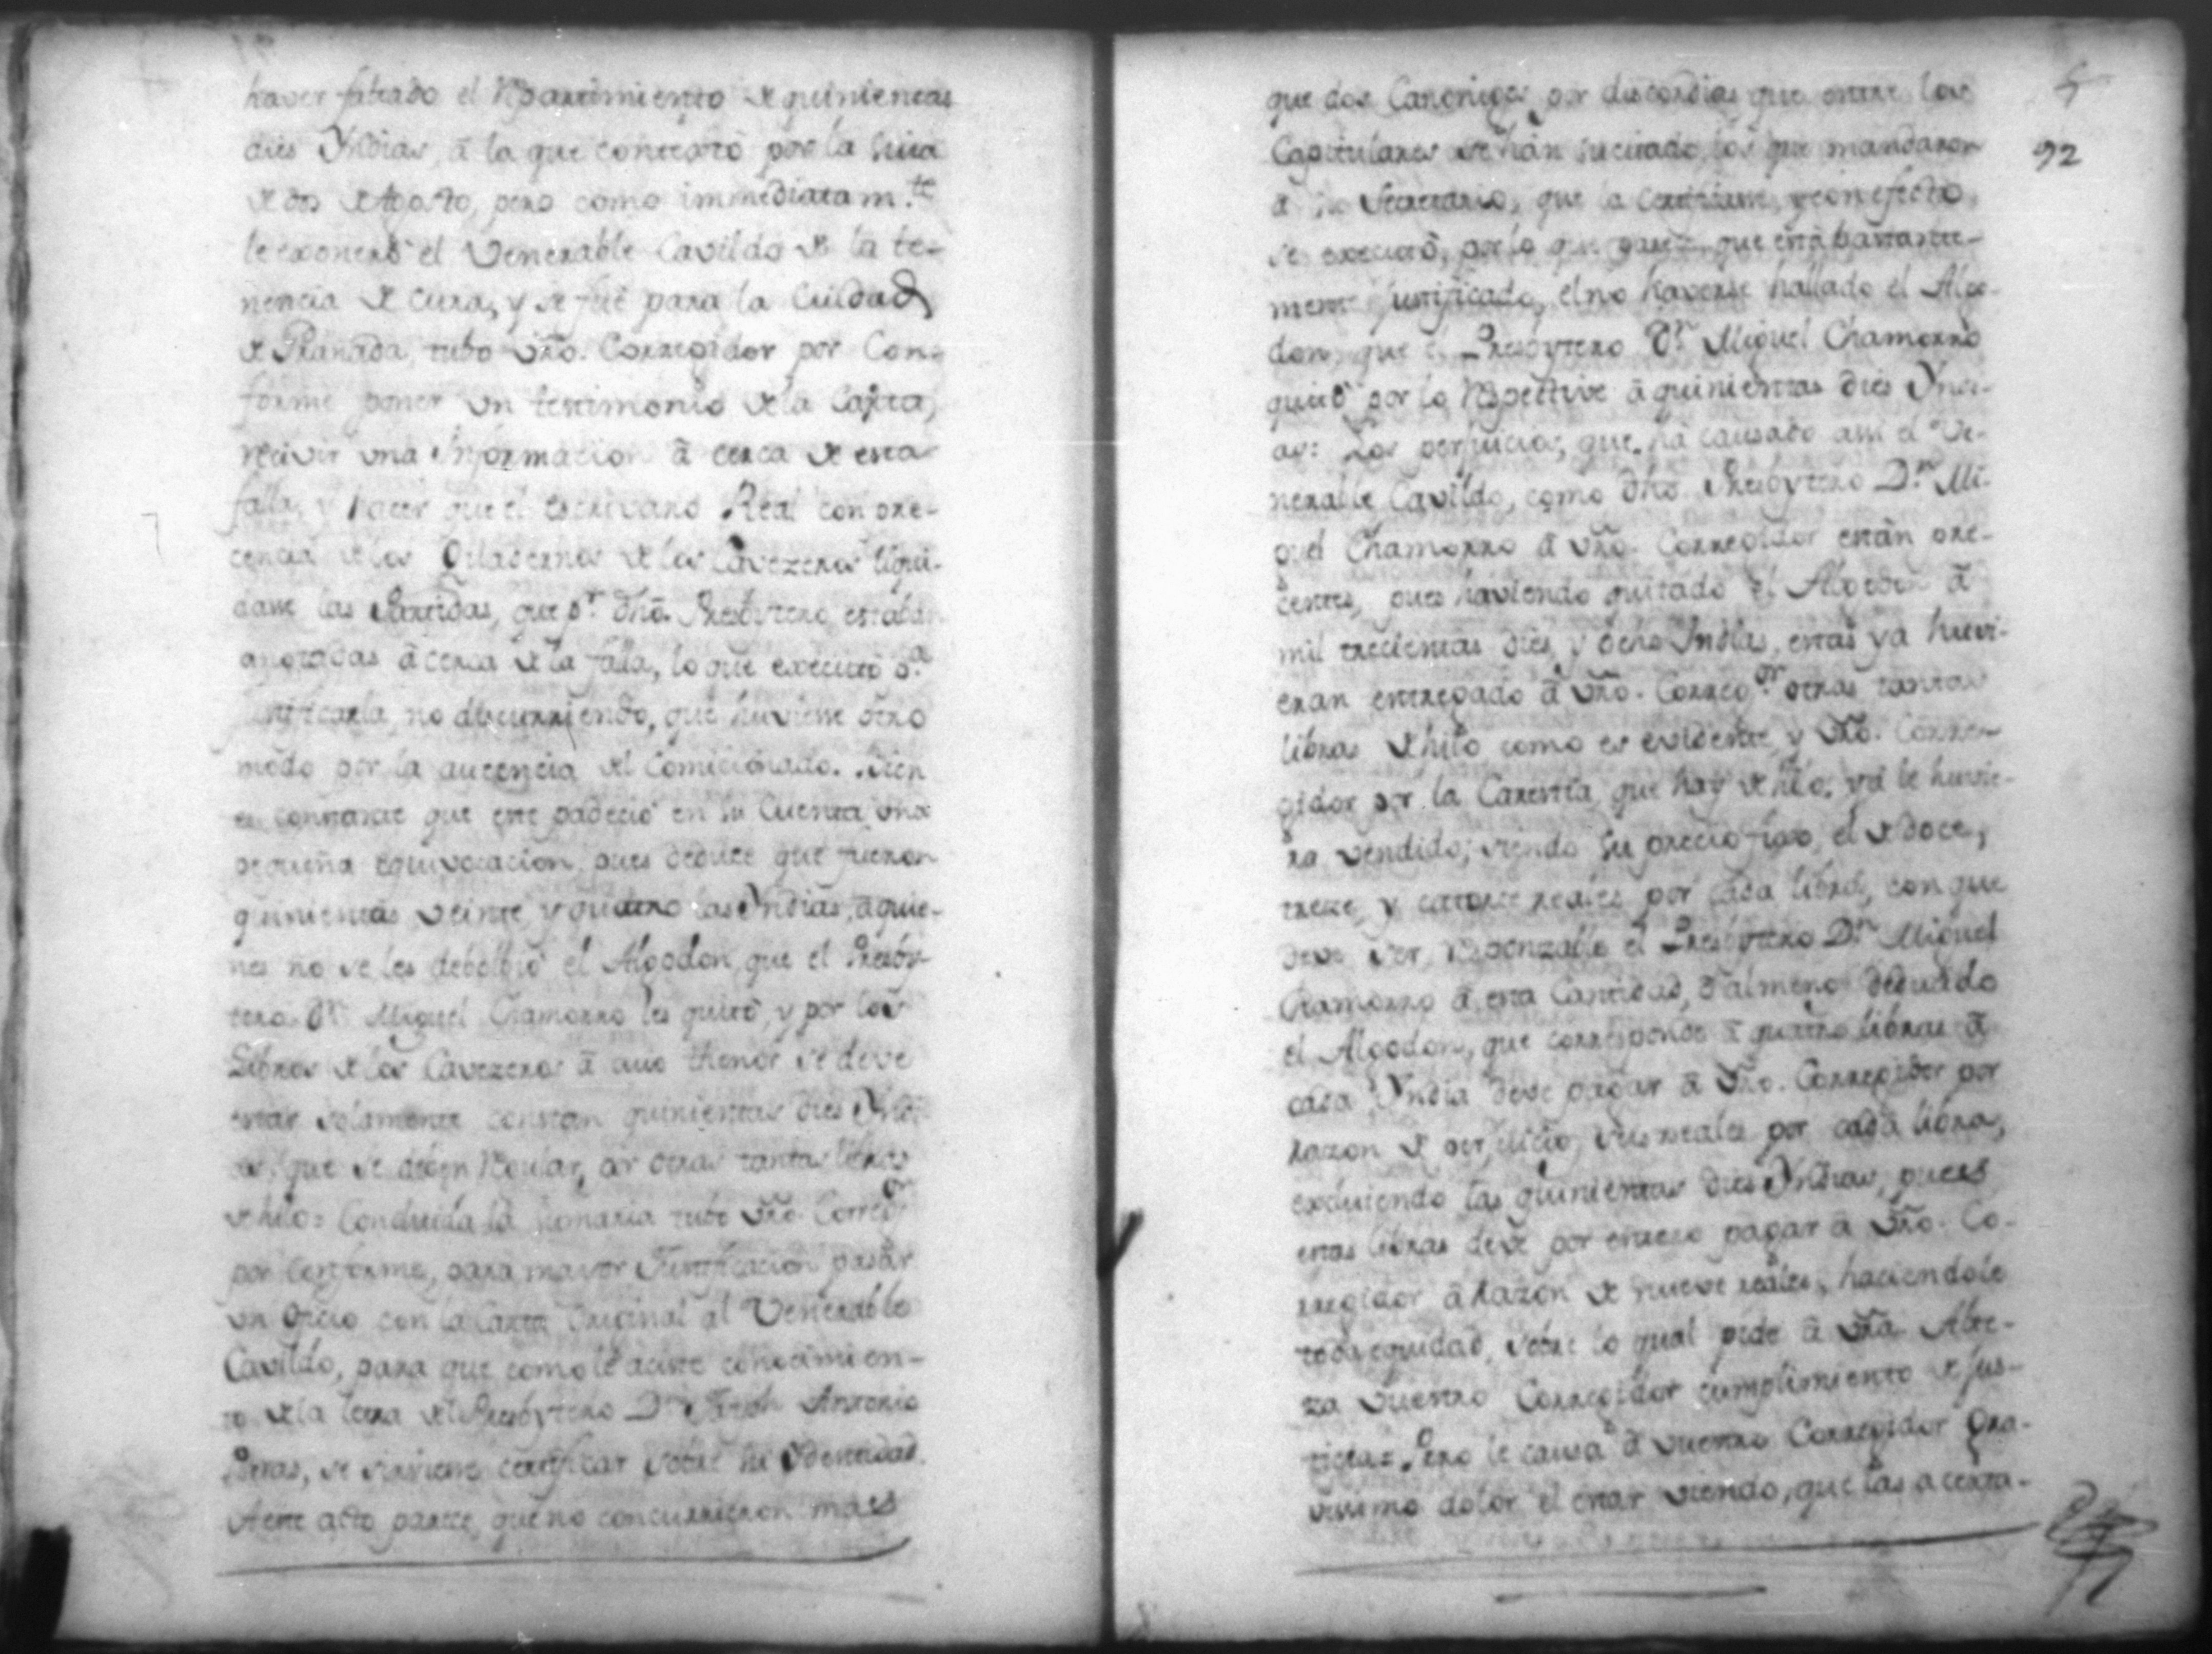 haver faltado el Repartimiento de quinientas
dies Yndias, â la que contextò por la suia
de dos de Agosto, pero como immediatam.te
le exonerò el Venerable Cavildo de la te-
nencia de cura, y se fuè para la Ciudad
de Granada, tubo vro. Corregidor por Con-
forme poner un testimonio de la Carta,
recivir una Informacion â cerca de esta
falla, y hacer que el escrivano Real con pre-
cencia de los Quadernos de los Cavezeros liqui-
dase las Partidas, que pr. dho. Presbytero estaban
anotadas âcerca de la falla, lo que executò pa.
justificarla, no discurriendo, que huviese otro
modo por la aucencia del Comicionado. Bien
es constante que este padeciò en su Cuenta una
pequeña equivocacion, pues deduce que fueron
quinientas veinte, y quatro las Yndias, â quie-
nes no se les debolbiò el Algodon, que el Presby-
tero Dn. Miguel Chamorro les quitò, y por los
Libros de los Cavezeros â cuio thenor se deve
estar solamente constan quinientas dies Yndi-
as, que se deben Regular, por otras tantas libras
de hilo: Concluida la sumaria tubo vro. Corregor.
por Conforme, para mayor Justificacion pasar
un Oficio con la Carta Original al Venerable
Cavildo, para que como le asiste conocimien-
to de la letra del Presbytero Dn. Antonio
, se sirviese certificar sobre su Ydentidad.
A este acto parece, que no concurrieron mas
5
92
que dos Canonigos por discordias, que entre los
Capitulares se hàn sucitado, los que mandaron
â su Secretario, que la certificase, y con efecto,
se executò, por lo que parece, que està bastante-
mente justificado, el no haverse hallado el Algo-
don, que el Presbytero Dn. Miguel Chamorro
quitò por lo Respective â quinientas dies Yndi-
as: Los perjuicios, que ha causado asi el Ve-
nerable Cavildo, como dho. Presbytero Dn. Mi-
guel Chamorro â vro. Corregidor estàn pre-
centes, pues haviendo quitado el Algodon â
mil trecientas dies, y ocho Indias, estas ya huvi-
eran entregado â vro. Corregor. otras tantas
libras de hilo como es evidente, y vro. Corre-
gidor por la Carestia, que hay de hilo, ya le huvie-
ra vendido; siendo su precio fixo, el de doce,
treze, y catorce reales por cada libra, con que
deve ser Responzable el Presbytero Dn. Miguel
Chamorro â esta Cantidad, ò al menos deducido
el Algodon, que corresponde â quatro libras â
cada Yndia deve pagar â vro. Corregidor por
razon de perjuicio, seis reales por cada libra,
excluiendo las quinientas dies Yndias, pues
estas libras deve por entero pagar â vro. Co-
rregidor â razon de nueve reales, haciendole
toda equidad, sobre lo qual pide â vra. Alte-
za vuestro Corregidor cumplimiento de jus-
ticia: Pero le causa â vuestro Corregidor gra-
visimo dolor el estar viendo, que las acerta-